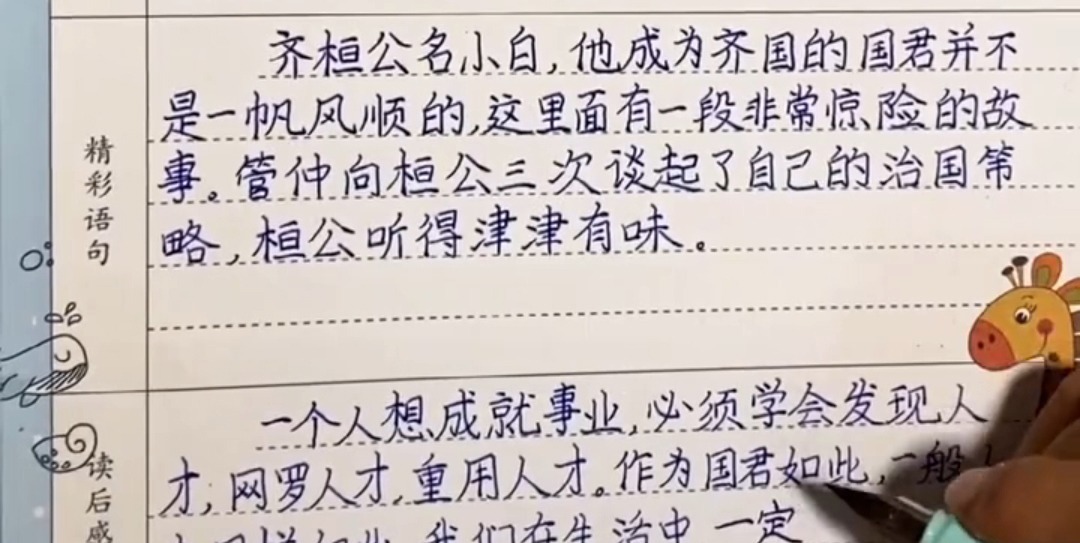 精彩语句
齐桓公名小白,他成为齐国的国君并不
是一帆风顺的,这里面有一段非常惊险的故
事。管仲向桓公三次谈起了自己的治国策
略,桓公听得津津有味。
读后感
一个人想成就事业,必须学会发现人
才,网罗人才,重用人才。作为国君如此,一般
我们在生活中,一定